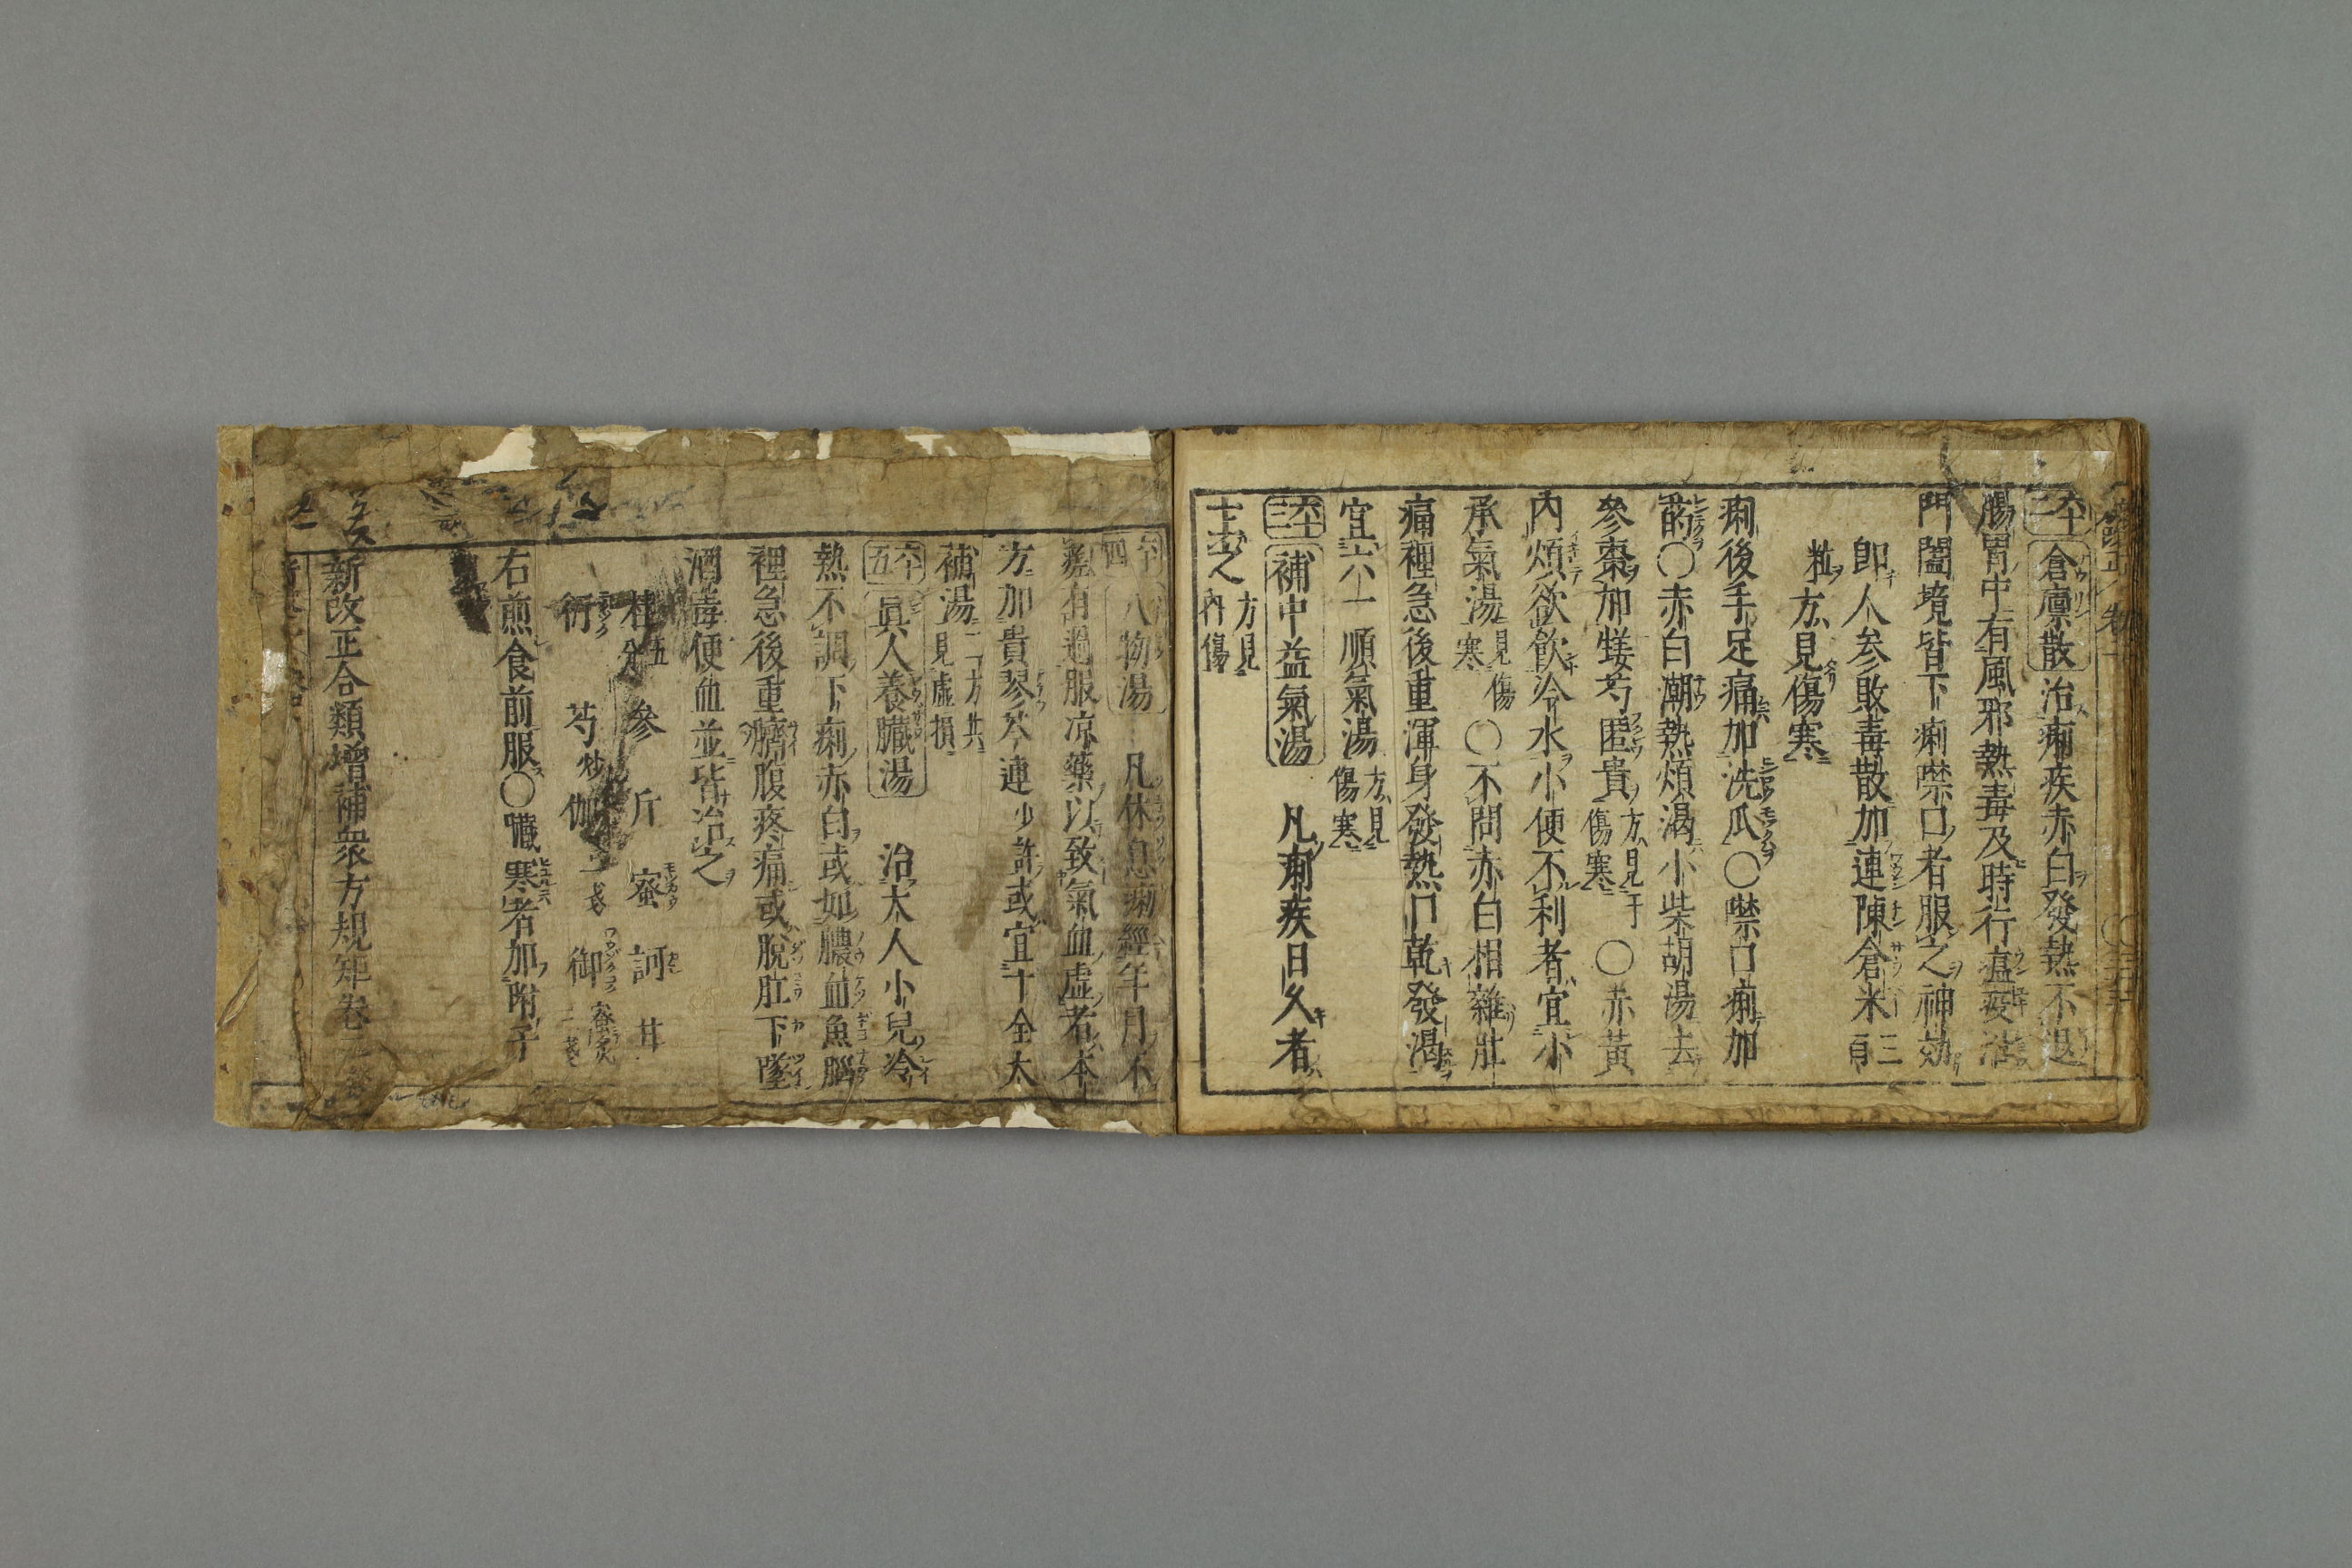 卒二 倉廩散 治痢疾赤白發熱不退
腸胃中有風邪熱毒及時行瘟疫沿
門闔境皆下痢噤口者服之神効
卽人参敗毒散加連陳倉米三百
粒方見傷寒
痢後手足痛加洗瓜〇噤口痢加
〇赤白潮熱煩渴小柴胡湯去
參棗加芍匿貴方見傷寒〇赤黃
內煩欲飮冷水小便不利者宜小
承氣湯見傷寒〇不問赤白相雜肚
痛裡急後重渾身發熱口乾發渴
宜六一順氣湯方見傷寒
卒三 補中益氣湯 凡痢疾日久者
主之方見內傷
卒四 八物湯 凡休息痢經年月不
瘥有過服凉藥以致氣血虛者本
方加貴琴芩連少許或宜十全大
補湯二方共見虛損
卒五 眞人養臟湯 治大人小兒冷
熱不調下痢赤白或如膿血魚腦
裡急後重臍腹疼痛或脫肛下墜
酒毒便血並皆治之
桂五分 參 斤 蜜 訶 甘
衍 芍炒 伽 御蜜炙
右煎食前服〇臟寒者加附子
新改正合類增補衆方規矩卷